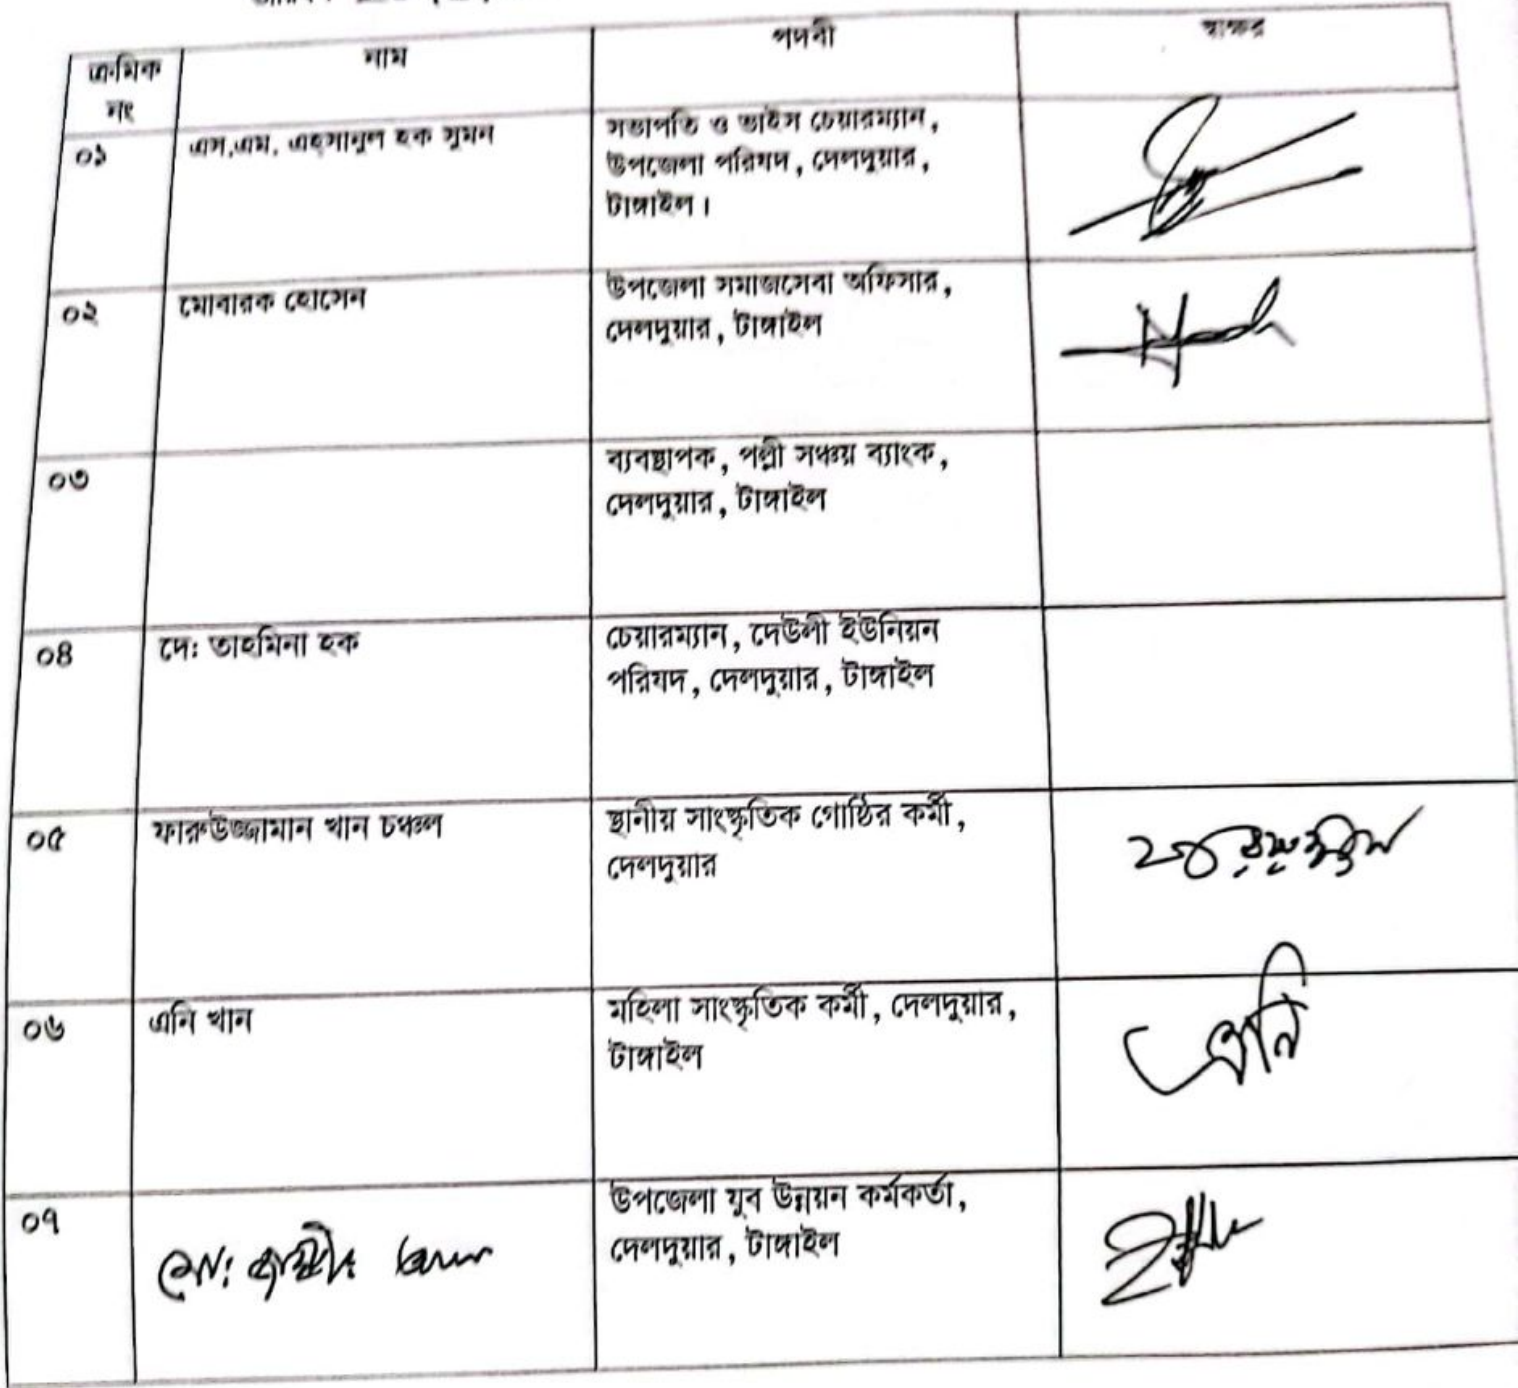 ক্রমিক নং
নাম
পদবী
স্বাক্ষর
০১
এস.এম. এহসানুল হক সুমন
সভাপতি ও ভাইস চেয়ারম্যান,
উপজেলা পরিষদ, দেলদুয়ার,
টাঙ্গাইল।
০২
মোবারক হোসেন
উপজেলা সমাজসেবা অফিসার,
দেলদুয়ার, টাঙ্গাইল
০৩
ব্যবস্থাপক, পল্লী সঞ্চয় ব্যাংক,
দেলদুয়ার, টাঙ্গাইল
০৪
দে: তাহমিনা হক
চেয়ারম্যান, দেউলী ইউনিয়ন
পরিষদ, দেলদুয়ার, টাঙ্গাইল
০৫
ফারুউজ্জামান খান চঞ্চল
স্থানীয় সাংস্কৃতিক গোষ্ঠির কর্মী,
দেলদুয়ার
০৬
এনি খান
মহিলা সাংস্কৃতিক কর্মী, দেলদুয়ার,
টাঙ্গাইল
এনি
০৭
মো:
উপজেলা যুব উন্নয়ন কর্মকর্তা,
দেলদুয়ার, টাঙ্গাইল